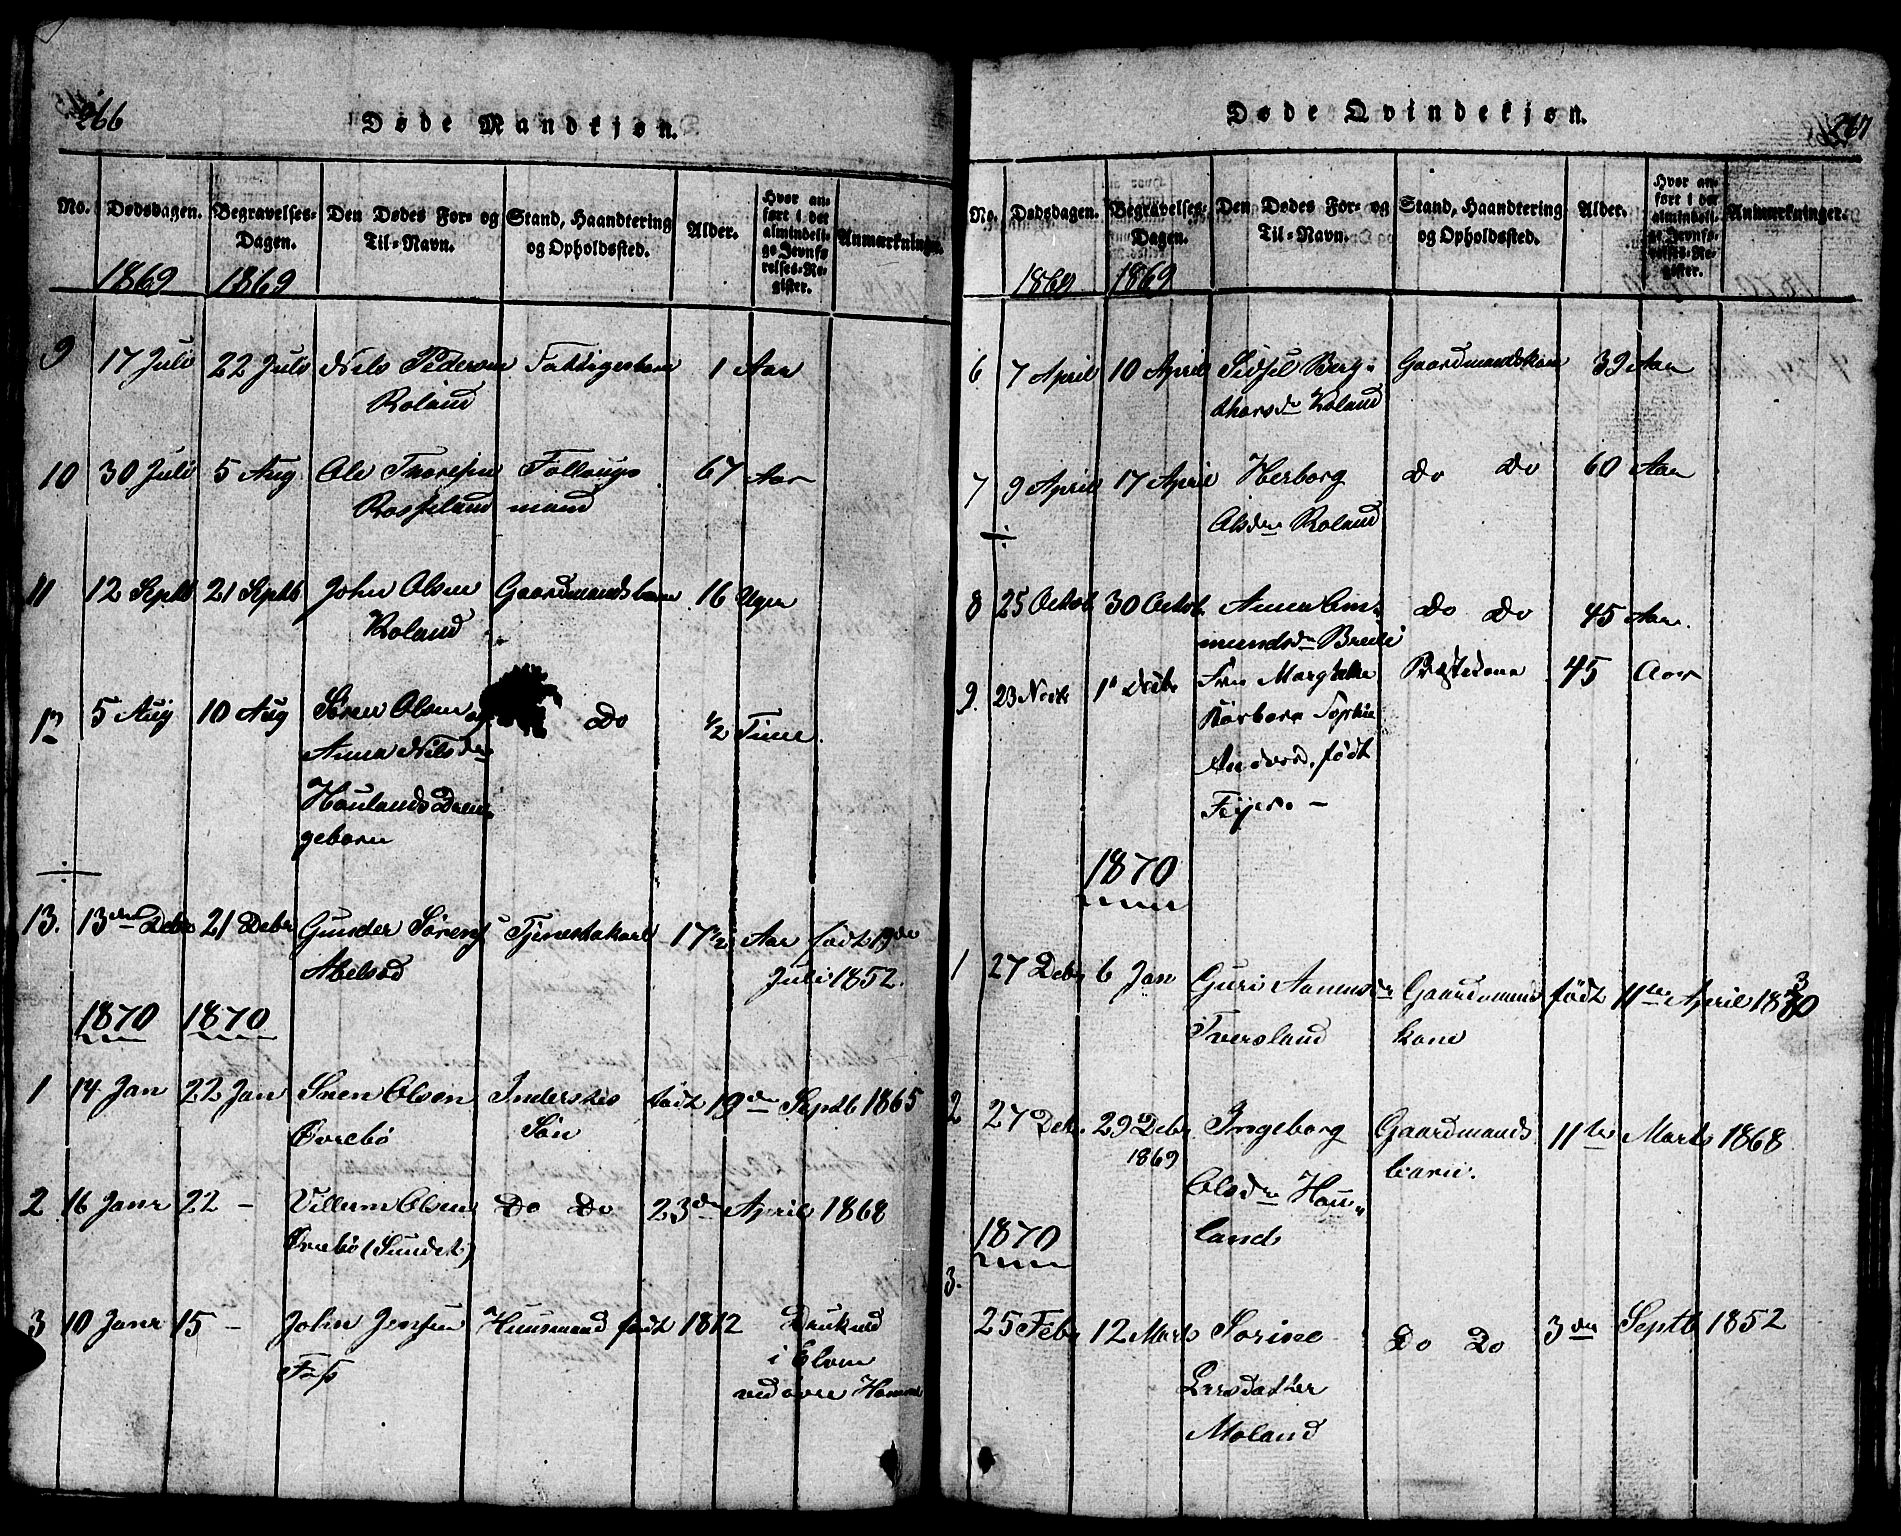 266
Døde Mandkjøn.
No. Dødsdagen. Begravelses-Dagen. Den Dødes For- og Til-Navn. Stand, Haandtering og Opholdssted. Alder. Hvor anført i det almindelige Jevnførelses-Register. Anmærkninger.
1869 1869
9 17 Juli 22 Juli Nils Pedersen Fattigesbarn 1 Aar
Roland
10 30 Juli 5 Aug Ole Thoresen Føllougs 67 Aar
Rosseland mand
11 12 Septb 21 Septb John Olsen Gaardmandsbarn 16 Uger
Roland
12 5 Aug 10 Aug Søren Olsen og Do ½ Time
Anna Nilsdr
Haulands Dreng
gebarn
13. 13den Debr 21 Debr Gunder Sørens Tjenestekarl 17½ Aar født 19de
Abelsd Juli 1852.
1870 1870
1 14 Jan 22 Jan Sven Olsen Inderstes født 19de Septb 1865
Øvrebø Søn
2 16 Janr 22 – Villum Olsen Do Do 23de April 1868
Øvrebø (Sundet)
3 10 Janr 15 – John Jensen Huusmand født 1812 Druknet
Foss i Elven
ved øvre
267
Døde Qvindekjøn.
No. Dødsdagen. Begravelses-Dagen. Den Dødes For- og Til-Navn. Stand, Haandtering og Opholdssted. Alder. Hvor anført i det almindelige Jevnførelses-Register. Anmærkninger.
1869 1869
6 7 April 10 April Sidsel Berg- Gaardmandskone 39 Aar
thorsdr Roland
7 9 April 17 April Herborg Do Do 60 Aar
Olsdr Roland
8 25 Octob 30 Octob. Anna Om- Do Do 45 Aar.
mundsdr Breeli
9. 23 Novb 1ste Decbr Fru Margrethe Præstekone 45 Aar
Barbara Sophie
født
–
1870
1 27 Debr 6 Jan Guri Aanensdr Gaardmands født 11te April 1830
Tversland kone
2 27 Debr. 29 Debr Ingeborg Gaardmands 11te Marts 1868
1869
Olsdr Hau- barn.
land
1870
3.
25 Febr 12 Marts Sorine Do Do 3de Septb 1852
Larsdatter
Moland